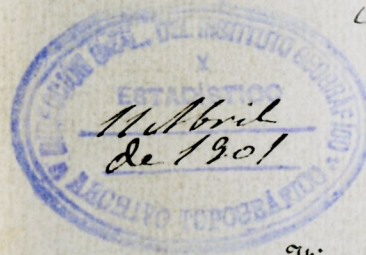 DIRECCIÓN GRAL. DEL INSTITUTO GEOGRÁFICO
Y
ESTADÍSTICO
11 Abril
de 1901
ARCHIVO TOPOGRÁFICO